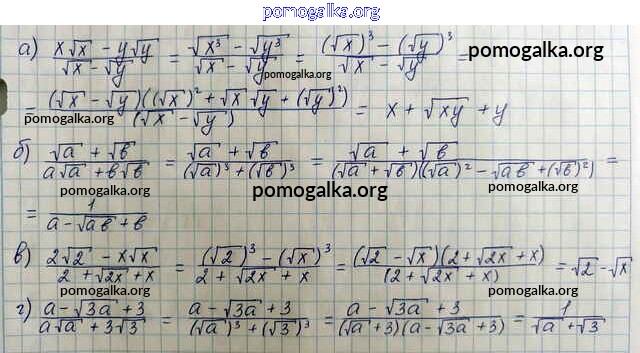 pomogalka.org
а) (x√x - y√y)/(√x - √y) = (√x³ - √y³)/(√x - √y) = ((√x)³ - (√y)³)/(√x - √y) = pomogalka.org
pomogalka.org
= ((√x - √y)((√x)² + √x√y + (√y)²))/(√x - √y) = x + √xy + y
pomogalka.org
б) (√a + √в)/(a√a + в√в) = (√a + √в)/((√a)³ + (√в)³) = (√a + √в)/((√a + √в)((√a)² - √aв + (√в)²)) =
pomogalka.org pomogalka.org pomogalka.org
= 1/(a - √aв + в)
в) (2√2 - x√x)/(2 + √2x + x) = ((√2)³ - (√x)³)/(2 + √2x + x) = ((√2 - √x)(2 + √2x + x))/(2 + √2x + x) = √2 - √x
pomogalka.org pomogalka.org
г) (a - √3a + 3)/(a√a + 3√3) = (a - √3a + 3)/((√a)³ + (√3)³) = (a - √3a + 3)/((√a + 3)(a - √3a + 3)) = 1/(√a + √3)